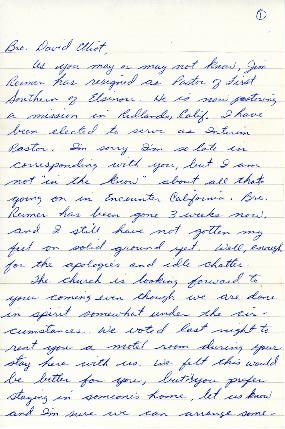 ①
Bro. David Eliot,
As you may or may not know, Jim
Reimer has resigned as Pastor of First
Southern of Elsinore. He is now pastoring
a mission in Redlands, Calif. I have
been elected to serve as Interim
Pastor. I'm sorry I'm so late in
corresponding with you, but I am
not "in the know" about all thats
going on in Encounter California. Bro.
Reimer has been gone 3 weeks now.
and I still have not gotten my
feet on solid ground yet. Well, enough
for the apologies and idle chatter.
The church is looking forward to
your coming even though we are down
in spirit somewhat under the cir-
cumstances. We voted last night to
rent you a motel room during your
stay here with us. We felt this would
be better for you, but if you prefer
staying in someone's home, let us know
and I'm sure we can arrange some-